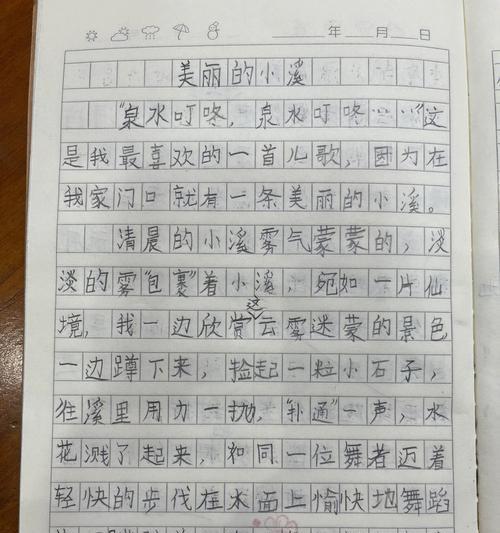 年 月 日
美丽的小溪
“泉水叮咚，泉水叮咚……”这
是我最喜欢的一首儿歌，因为在
我家门口就有一条美丽的小溪。
清晨的小溪雾气蒙蒙的，淡
淡的雾“包裹”着小溪，宛如一片仙
境，我一边欣赏这云雾迷蒙的景色
一边蹲下来，捡起一粒小石子，
往溪里用力一抛，“扑通”一声，水
花溅了起来，和同一位舞者迈着
轻快的步伐在水面上愉快地舞蹈